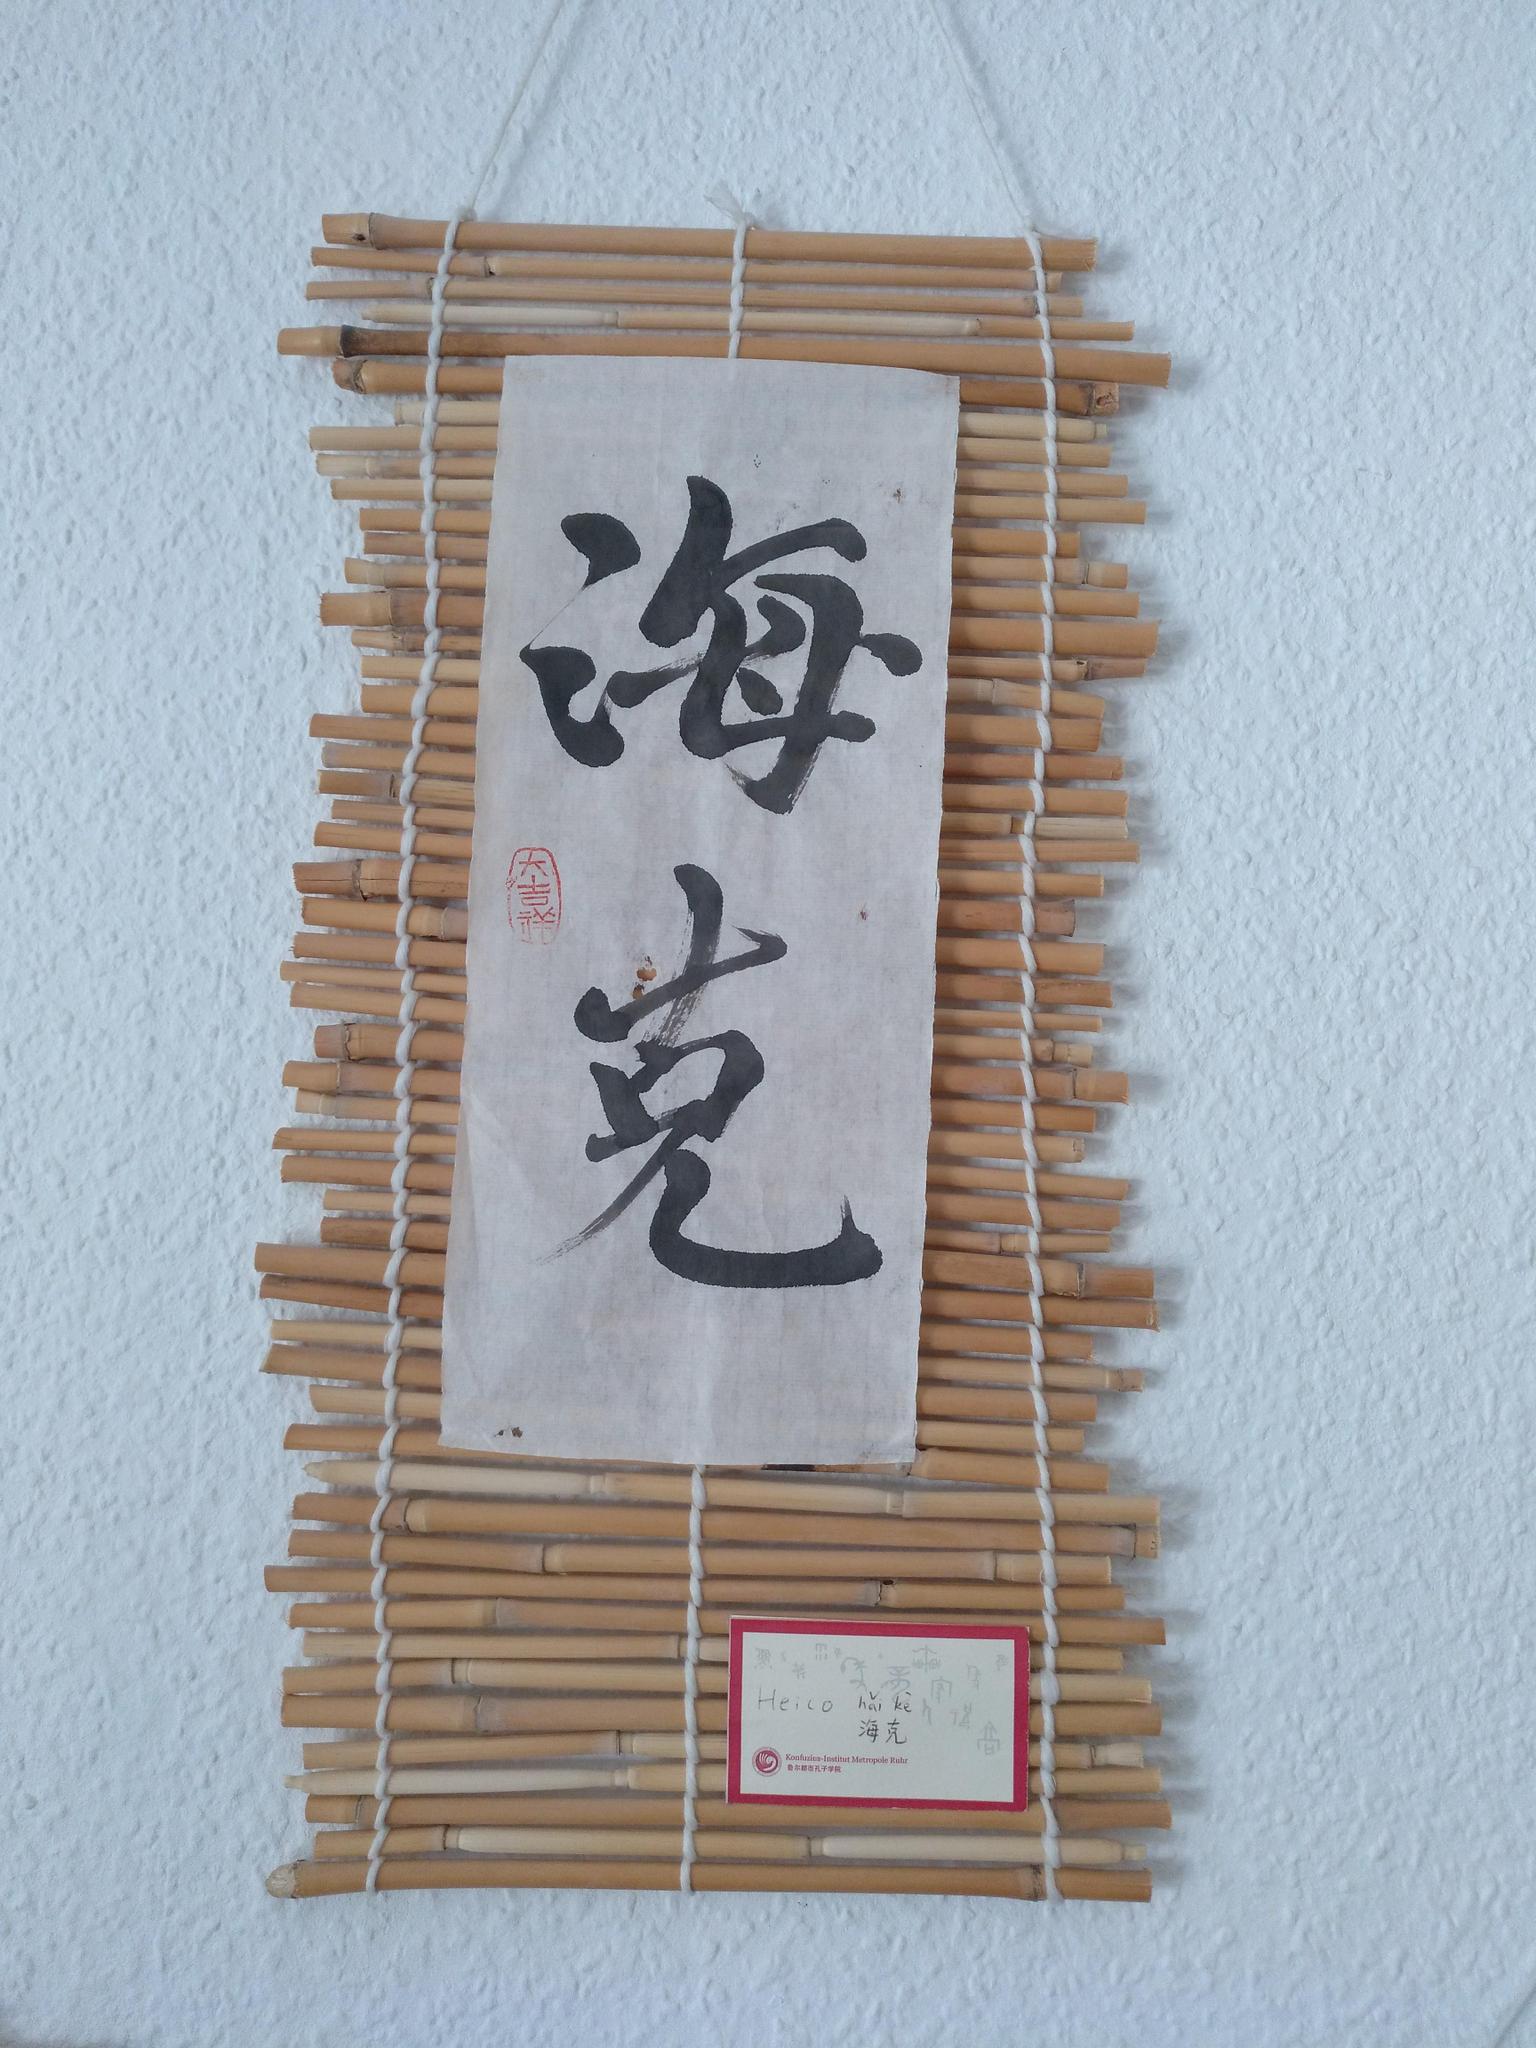 海
克
大
吉
祥
Heico hǎi kè
海克
Konfuzius-Institut Metropole Ruhr
鲁尔都市孔子学院